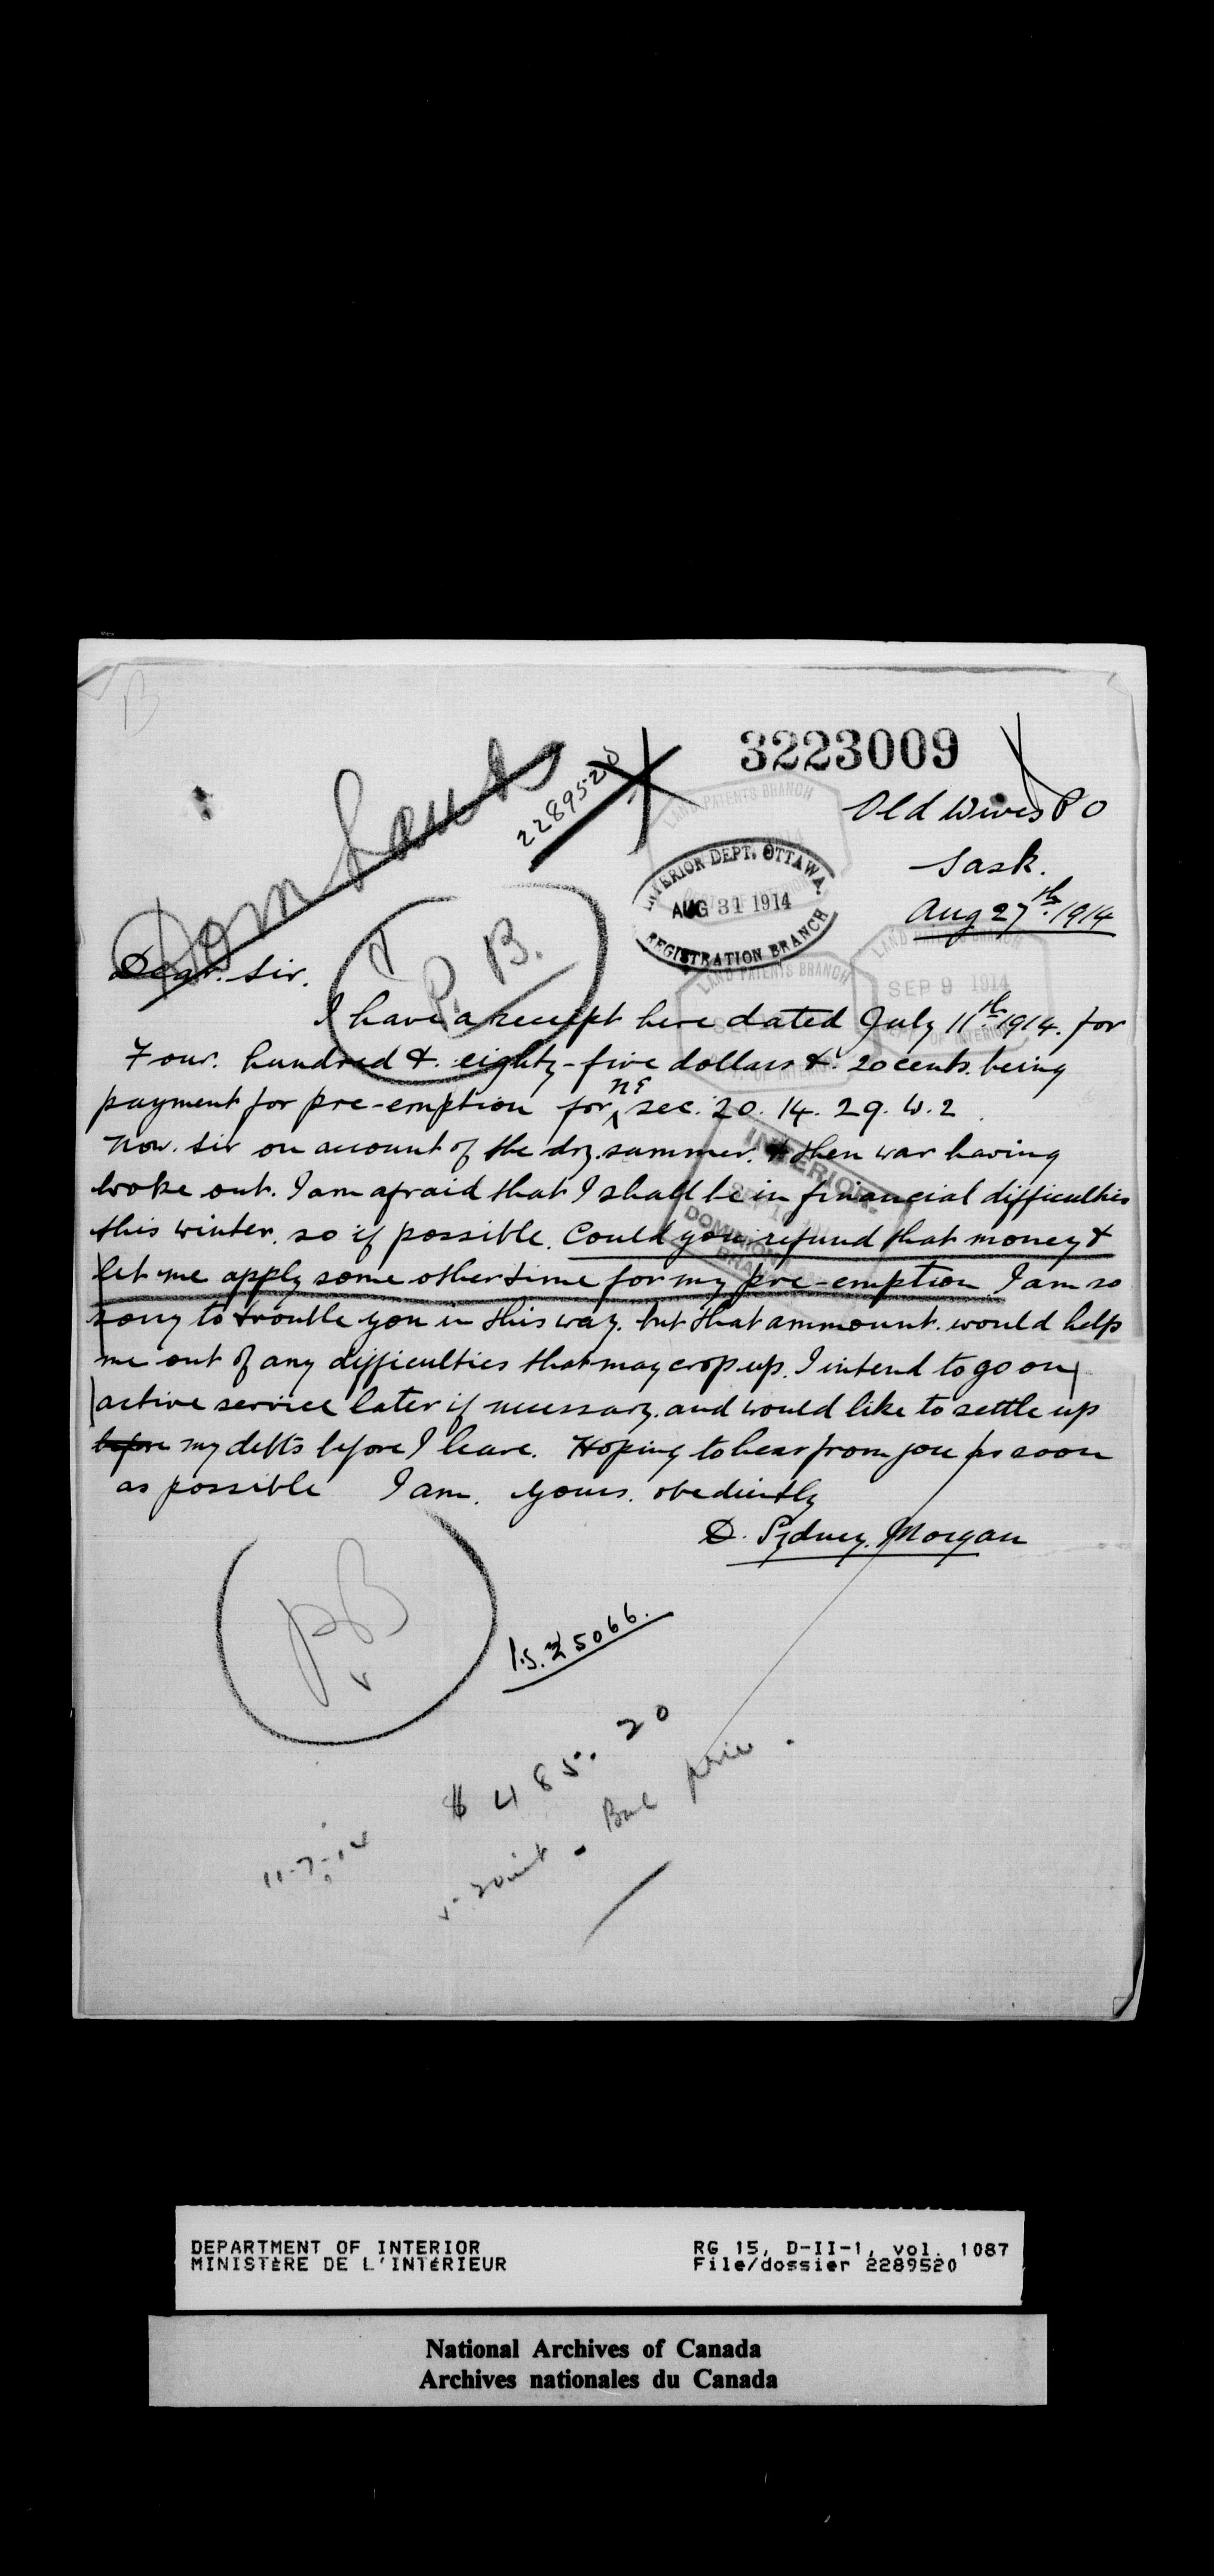 3223009
2289520
Dom Lands
Old Wives P O
Sask.
Aug 27th. 1914
INTERIOR DEPT. OTTAWA.
AUG 31 1914
REGISTRATION BRANCH
LAND PATENTS BRANCH
LAND PATENTS BRANCH
SEP 9 1914
LAND PATENTS BRANCH
P. B.
Dear. Sir.
I have a receipt here dated July 11th. 1914. for
Four. hundred &. eighty-five dollars &. 20 cents. being
payment for pre-emption for ne sec. 20. 14. 29. W. 2.
Now. sir on account of the dry. summer. & then war having
broke out. I am afraid that I shall be in financial difficulties
this winter. so if possible. Could you refund that money &
let me apply some other time for my pre-emption. I am so
sorry to trouble you in this way. but that ammount. would help
me out of any difficulties that may crop up. I intend to go on
active service later if necessary. and would like to settle up
before my debts before I leave. Hoping to hear from you as soon
as possible I am. yours. obediently
D. Sydney. Morgan
INTERIOR.
DOMINION
BRANCH
PB
$ 485. 20
11-7-14
DEPARTMENT OF INTERIOR
MINISTÈRE DE L'INTÉRIEUR
RG 15, D-II-1, vol. 1087
File/dossier 2289520
National Archives of Canada
Archives nationales du Canada